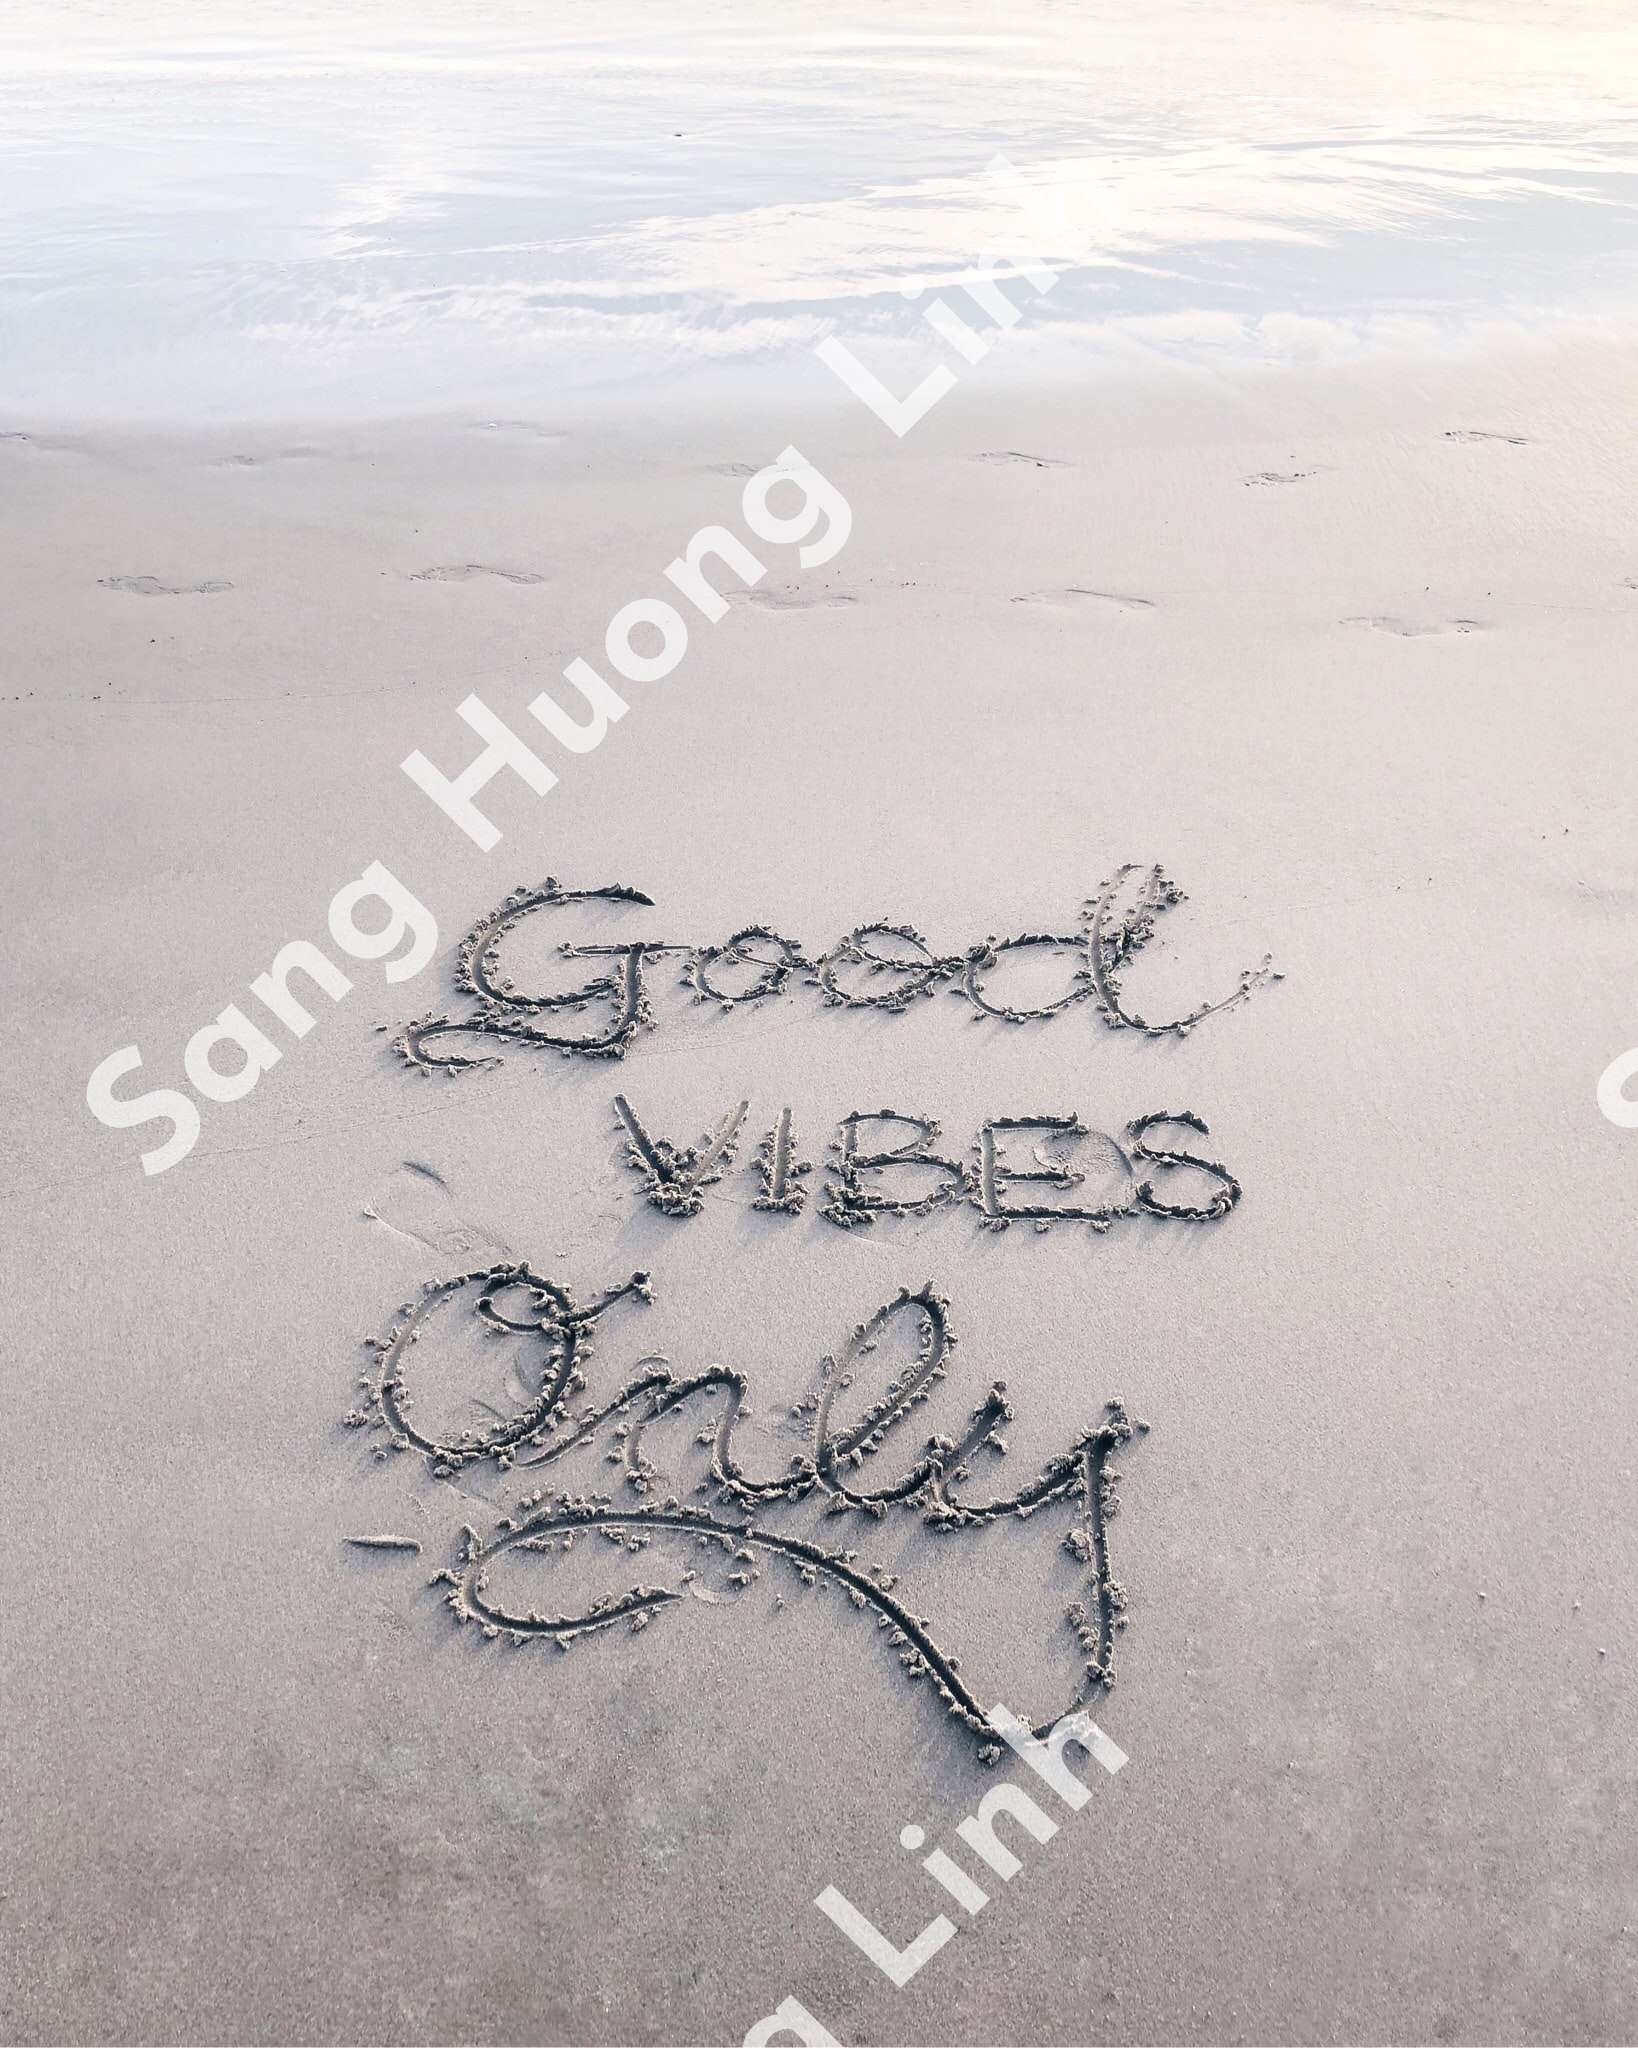 Sang Huong Linh
Good
VIBES
Only
Linh